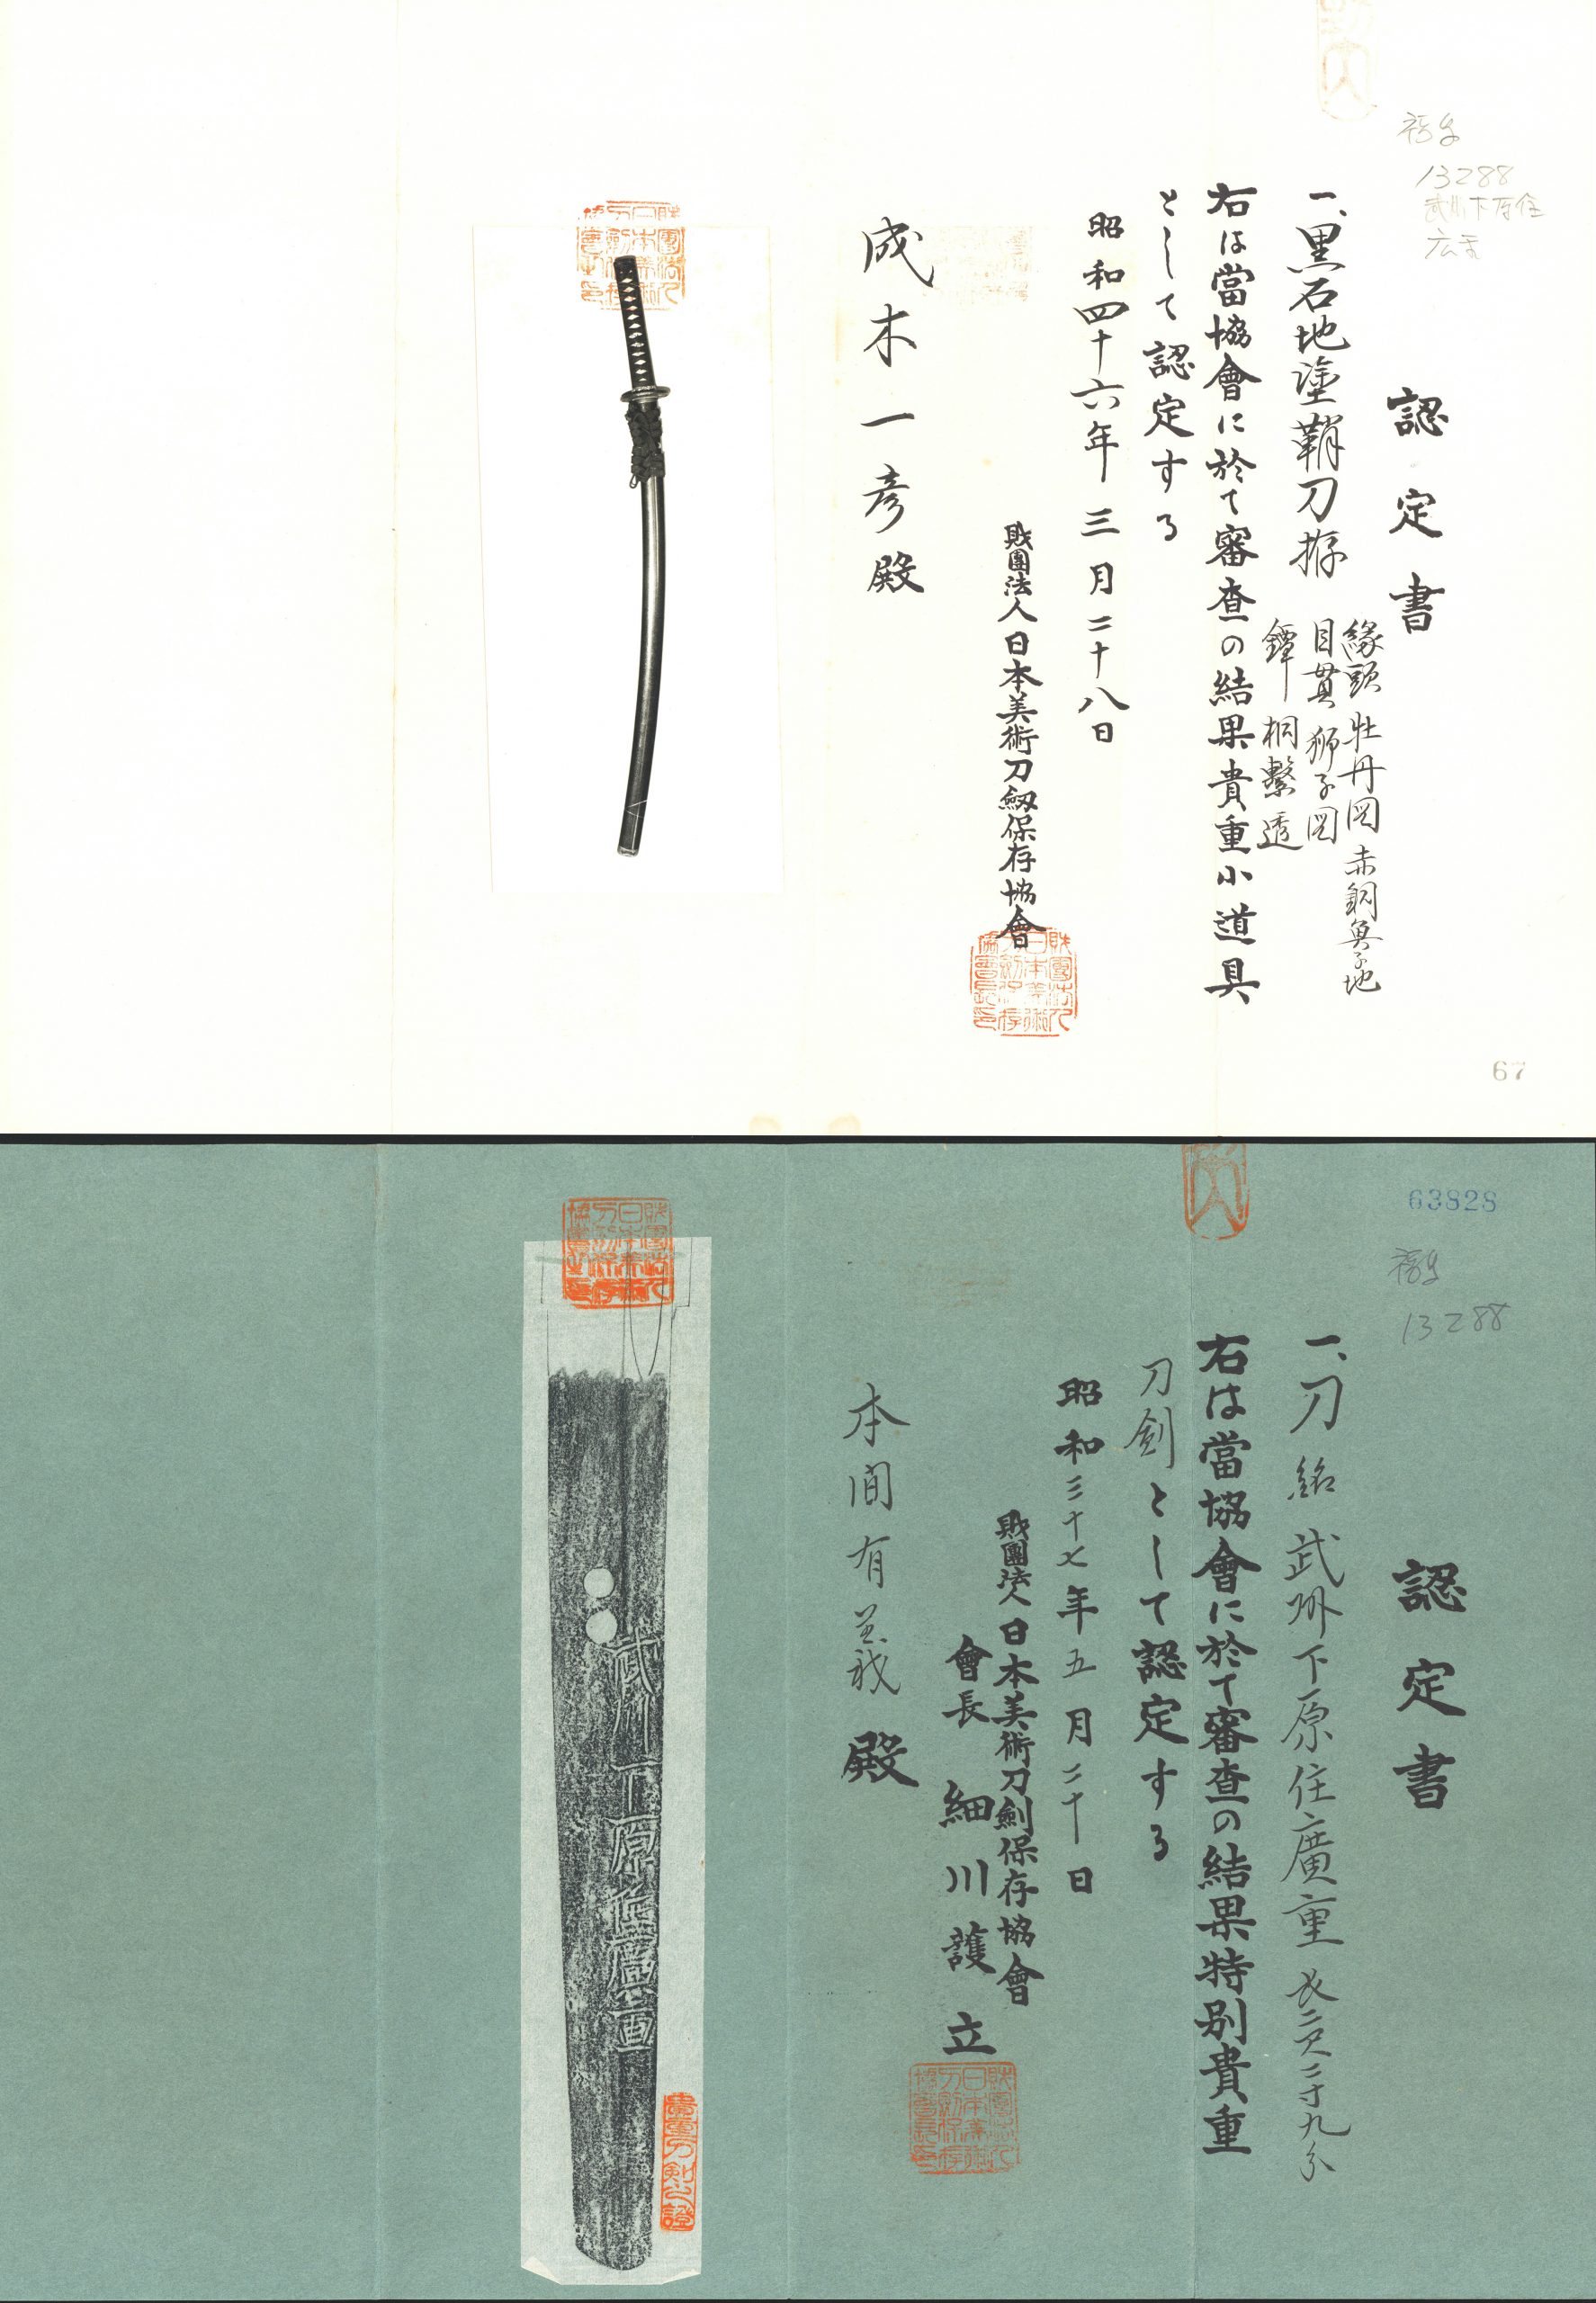 13288
武州下原住
認定書
一、黒石地塗鞘刀拵
縁頭 牡丹図 赤銅魚子地
目貫 獅子図
鐔 桐繋透
右は當協會に於て審査の結果貴重小道具
として認定する
昭和四十六年三月二十八日
財團法人日本美術刀剱保存協會
成木一彦殿
67
63828
13288
認定書
一、刀 銘 武州下原住廣重 長二尺二寸九分
右は當協會に於て審査の結果特別貴重
刀剣として認定する
昭和三十七年五月二十日
財團法人日本美術刀剣保存協會
會長 細川護立
本間有義殿
武州下原住廣重
貴重刀剣之證